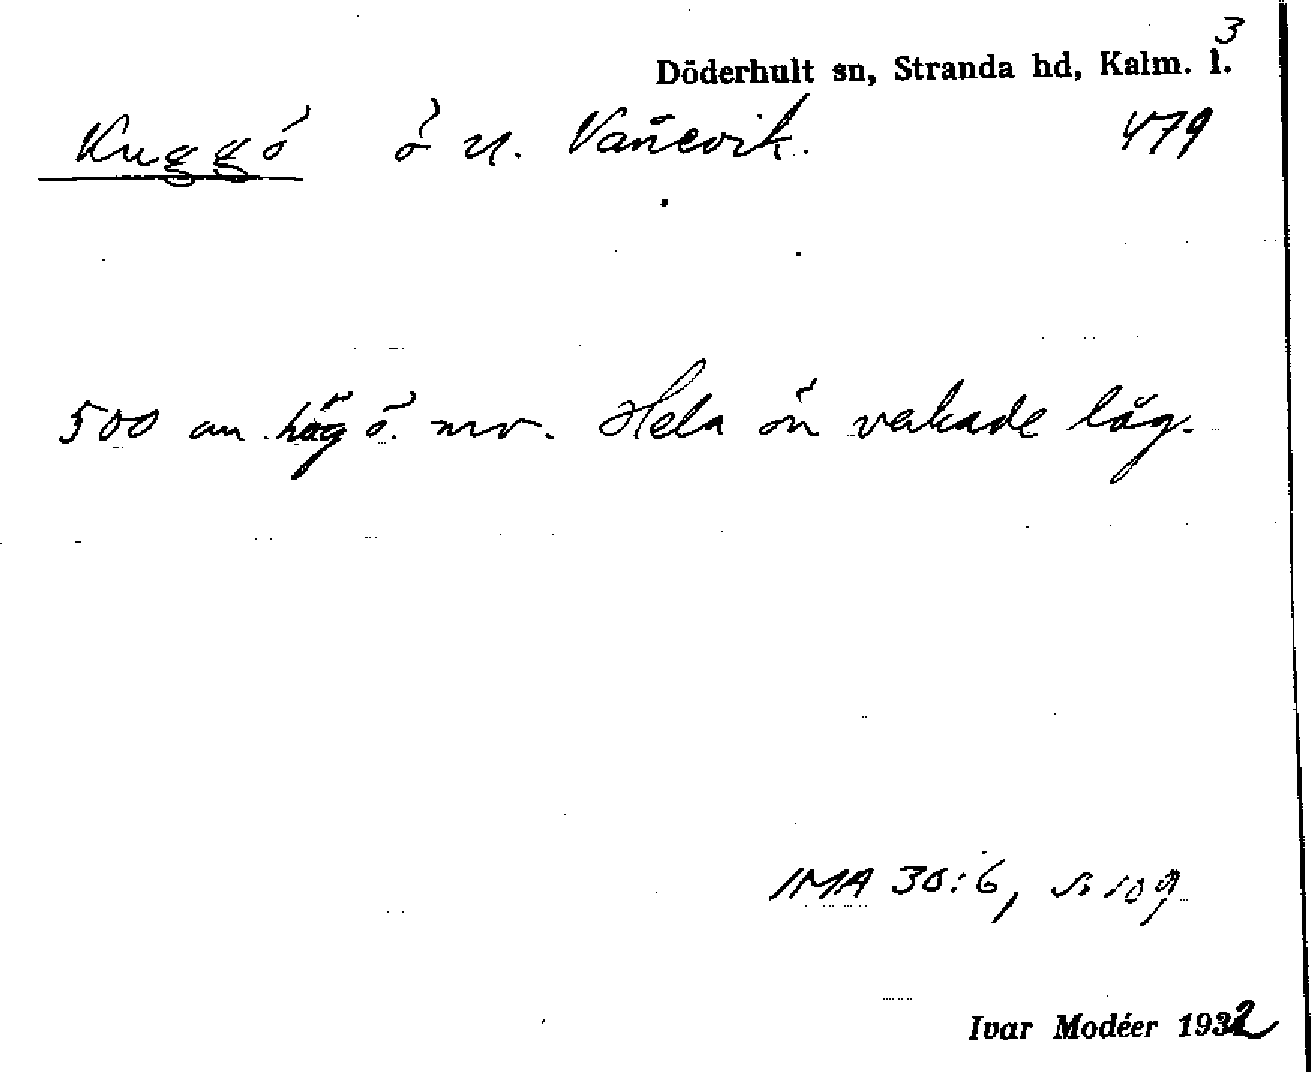 3
Döderhult sn, Stranda hd, Kalm. l.
Kuggö ö u. Vånevik. 479
500 am. hög ö. nv. Hela ön verkade låg.
IMA 30:6, s. 109
Ivar Modéer 1932